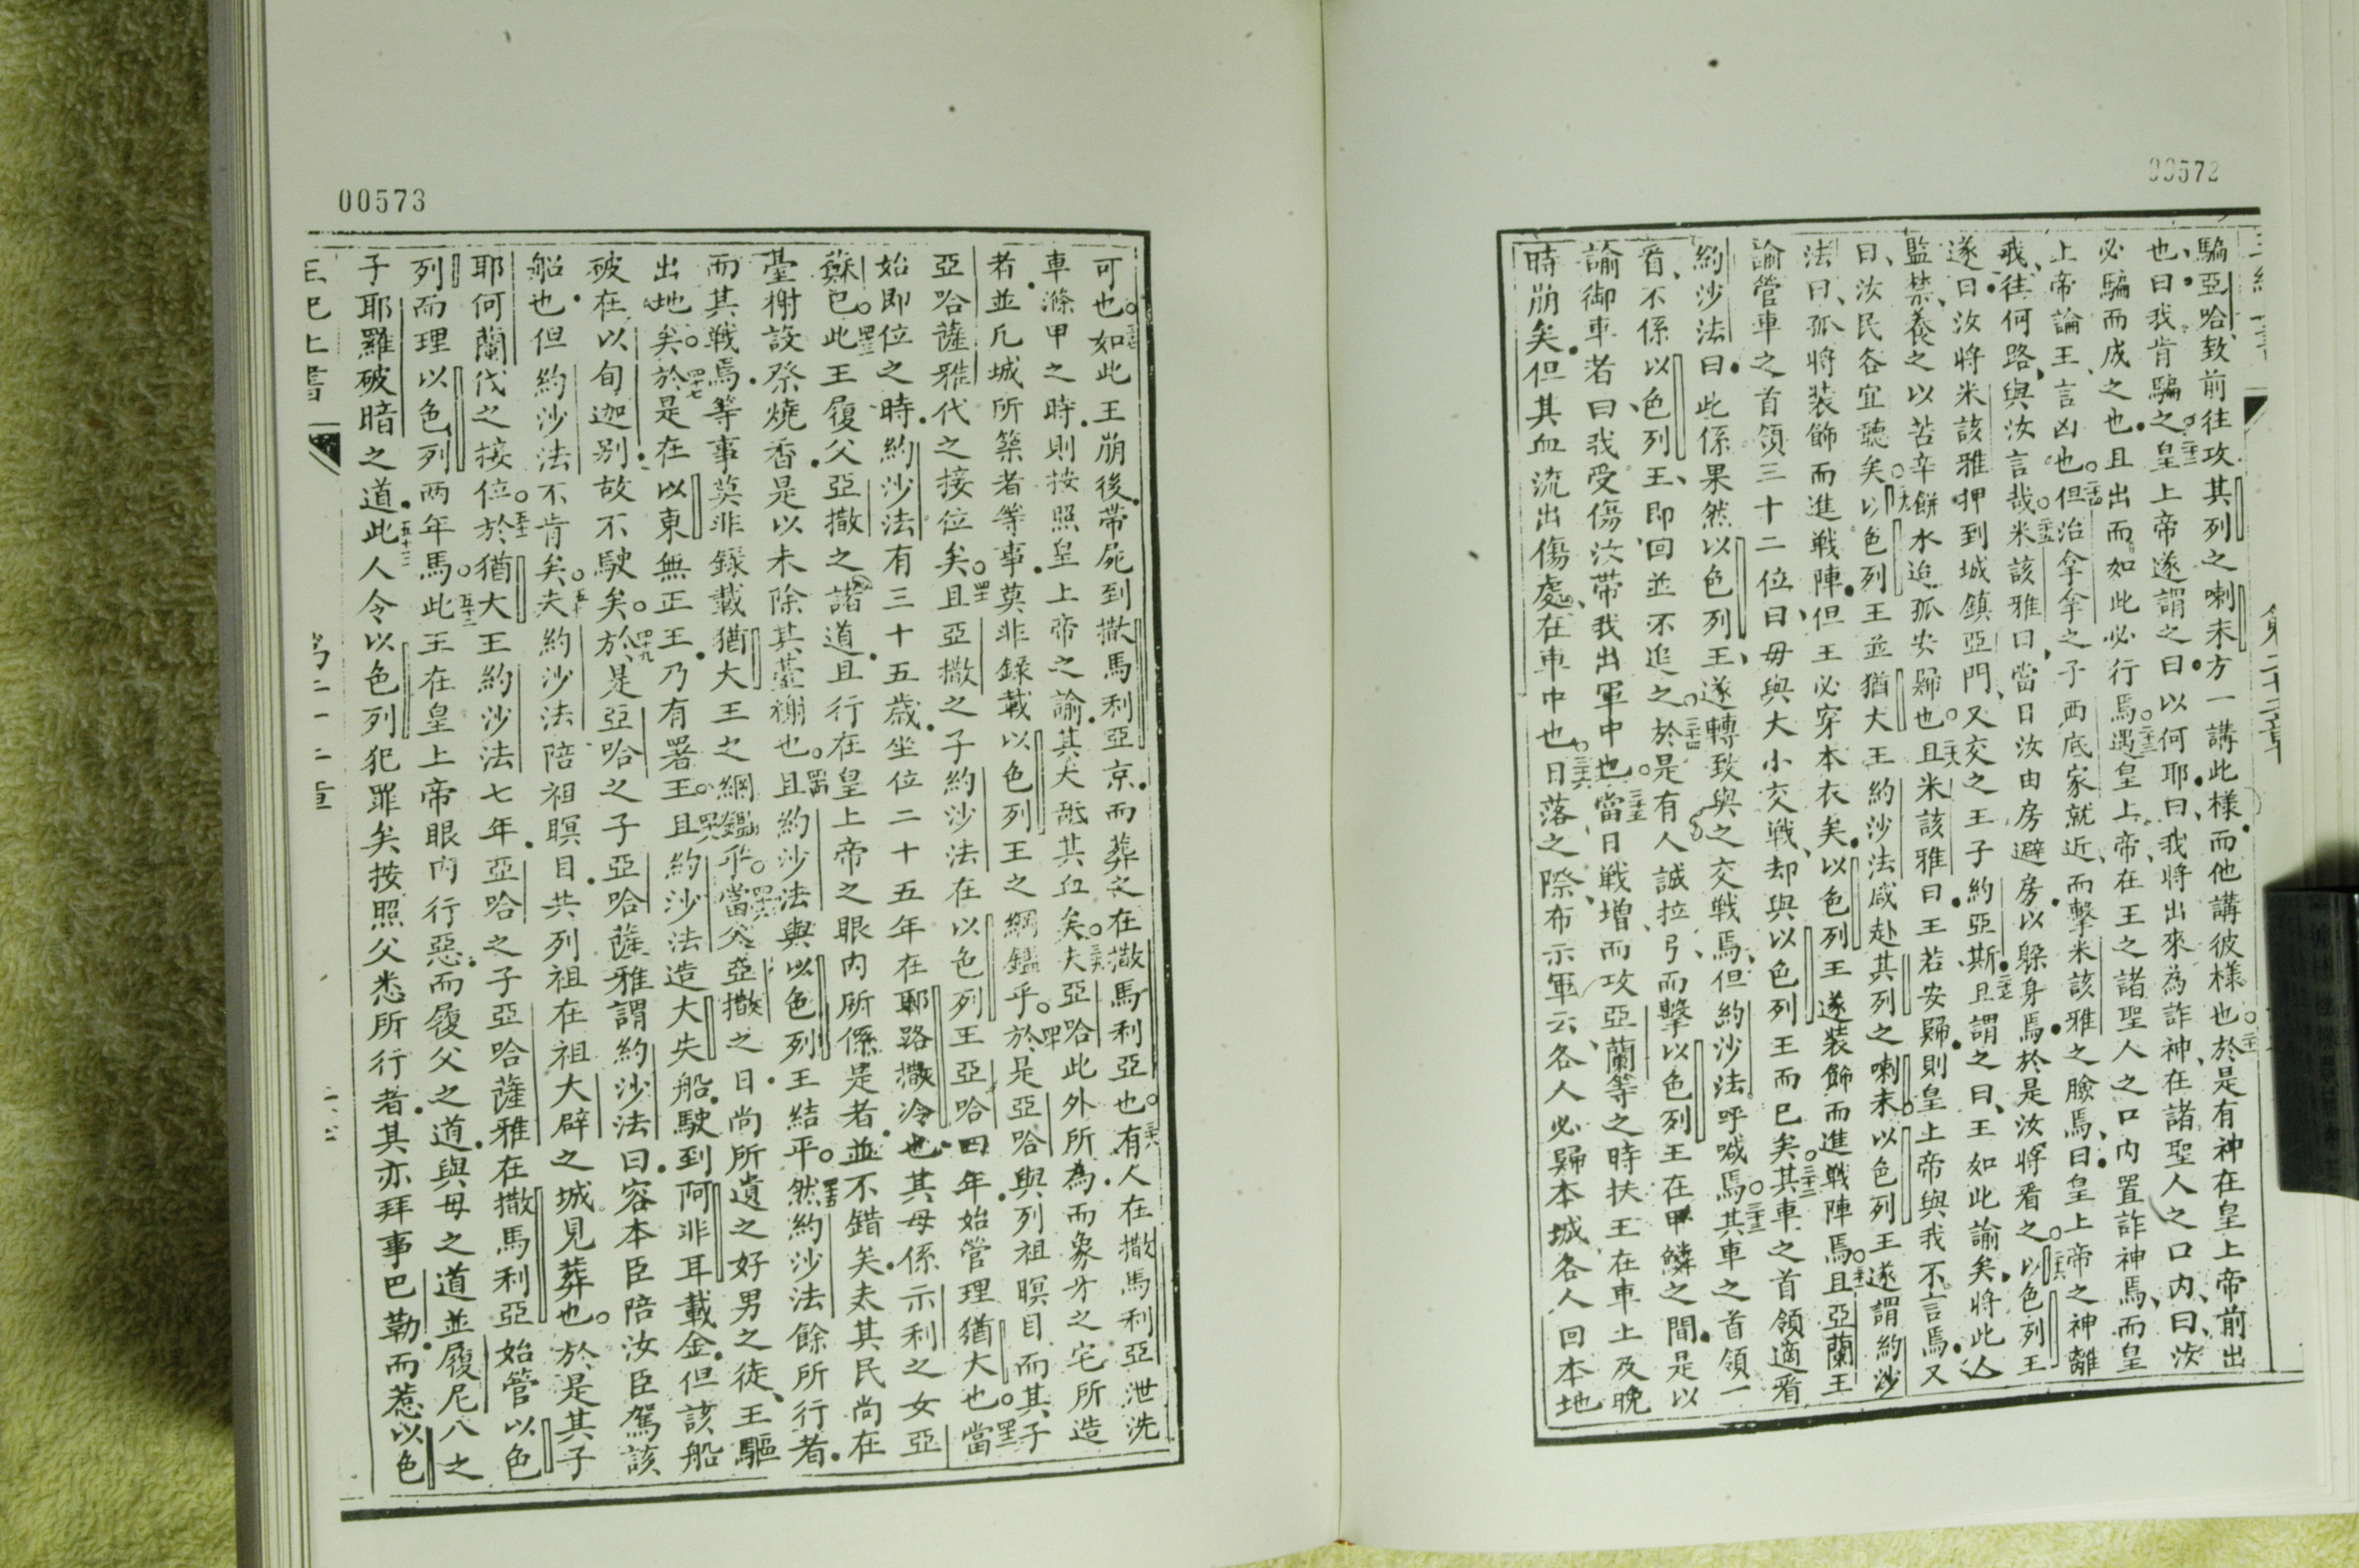 00572
騙亞哈致前往攻其列之喇末方一講此樣而他講彼樣也○二十一於是有神在皇上帝前出
也曰我肯騙之○二十二皇上帝遂謂之曰以何耶曰我將出來為詐神在諸聖人之口內曰汝
必騙而成之也且出而如此必行焉○二十三遇皇上帝在王之諸聖人之口內置詐神焉而皇
上帝諭王言凶也○二十四但治拿拿之子西底家就近而擊米該雅之臉焉曰皇上帝之神離
我往何路與汝言哉○二十五米該雅曰當日汝由房避房以躲身焉於是汝將看之○二十六以色列王
遂曰汝將米該雅押到城鎮亞門又交之王子約亞斯○二十七且謂之曰王如此諭矣將此人
監禁養之以苦辛餅水迨孤安歸也○二十八且米該雅曰王若安歸則皇上帝與我不言焉又
曰汝民各宜聽矣○二十九以色列王並猶大王約沙法咸赴其列之喇末○三十以色列王遂謂約沙
法曰孤將裝飾而進戰陣但王必穿本衣矣以色列王遂裝飾而進戰陣焉○三十一且亞蘭王
諭管車之首領三十二位曰毋與大小交戰却與以色列王而已矣○三十二其車之首領適看
約沙法曰此係果然以色列王遂轉致與之交戰焉但約沙法呼喊焉○三十三其車之首領一
看不係以色列王即回並不追之○三十四於是有人誠拉弓而擊以色列王在甲鱗之間是以
諭御車者曰我受傷汝帶我出軍中也○三十五當日戰增而攻亞蘭等之時扶王在車上及晚
時崩矣但其血流出傷處在車中也○三十六日落之際布示軍云各人必歸本城各人回本地
00573
可也○三十七如此王崩後帶屍到撒馬利亞京而葬之在撒馬利亞也○三十八有人在撒馬利亞泄洗
車滌甲之時則按照皇上帝之諭其犬舐其血矣○三十九夫亞哈此外所為而象牙之宅所造
者並凡城所築者等事莫非錄載以色列王之綱鑑乎○四十於是亞哈與列祖瞑目而其子
亞哈薩雅代之接位矣○四十一且亞撒之子約沙法在以色列王亞哈四年始管理猶大也○四十二當
始即位之時約沙法有三十五歲坐位二十五年在耶路撒冷也其母係示利之女亞
蘇巴○四十三此王履父亞撒之諸道且行在皇上帝之眼內所係是者並不錯矣夫其民尚在
臺榭設祭燒香是以未除其臺榭也○四十四且約沙法與以色列王結平○四十五然約沙法餘所行者
而其戰焉等事莫非錄載猶大王之綱鑑乎○四十六當父亞撒之日尚所遺之好男之徒王驅
出地矣○四十七於是在以東無正王乃有署王○四十八且約沙法造大失船駛到阿非耳載金但該船
破在以旬迦別故不駛矣○四十九於是亞哈之子亞哈薩雅謂約沙法曰容本臣陪汝臣駕該
船也但約沙法不肯矣○五十夫約沙法陪祖瞑目共列祖在祖大辟之城見葬也○於是其子
耶何蘭代之接位○五十一於猶大王約沙法七年亞哈之子亞哈薩雅在撒馬利亞始管以色
列而理以色列两年馬○五十二此王在皇上帝眼內行惡而履父之道與母之道並履尼八之
子耶羅破暗之道○五十三此人令以色列犯罪矣按照父悉所行者其亦拜事巴勒而惹以色